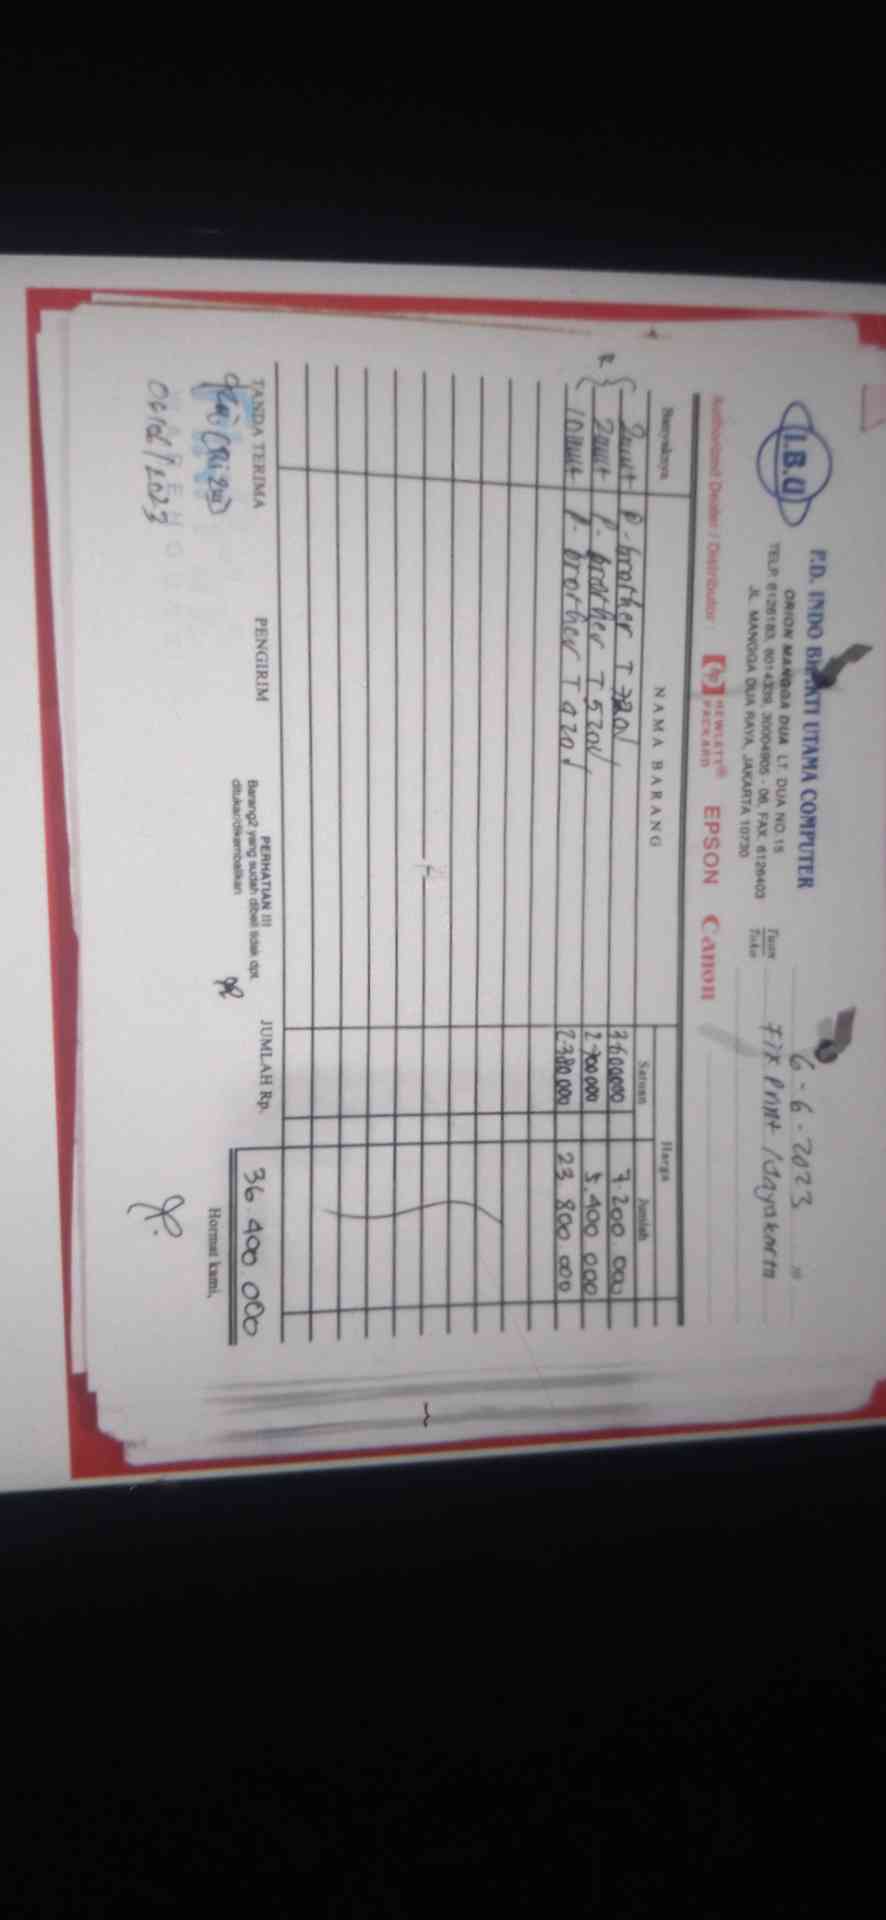 I.B.U
P.D. INDO BHAKTI UTAMA COMPUTER
ORION MANGGA DUA LT. DUA NO. 15
TELP. 6126183, 6014339, 30004905 - 06, FAX. 6126403
JL. MANGGA DUA RAYA, JAKARTA 10730
6-6-2023
Tuan
Toko
Fix Print / Jayakarta
Authorized Dealer / Distributor : hp HEWLETT® PACKARD EPSON Canon
Banyaknya NAMA BARANG Harga
Satuan Jumlah
2unit P-brother T720 3600000 7.200 000
2unit P-brother T520 2700000 5.400 000
10unit P-brother T420 2380000 23 800 000
TANDA TERIMA PENGIRIM PERHATIAN !!! JUMLAH Rp. 36.400.000
Barang2 yang sudah dibeli tidak dpt.
ditukar/dikembalikan
Hormat kami,
06/06/2023